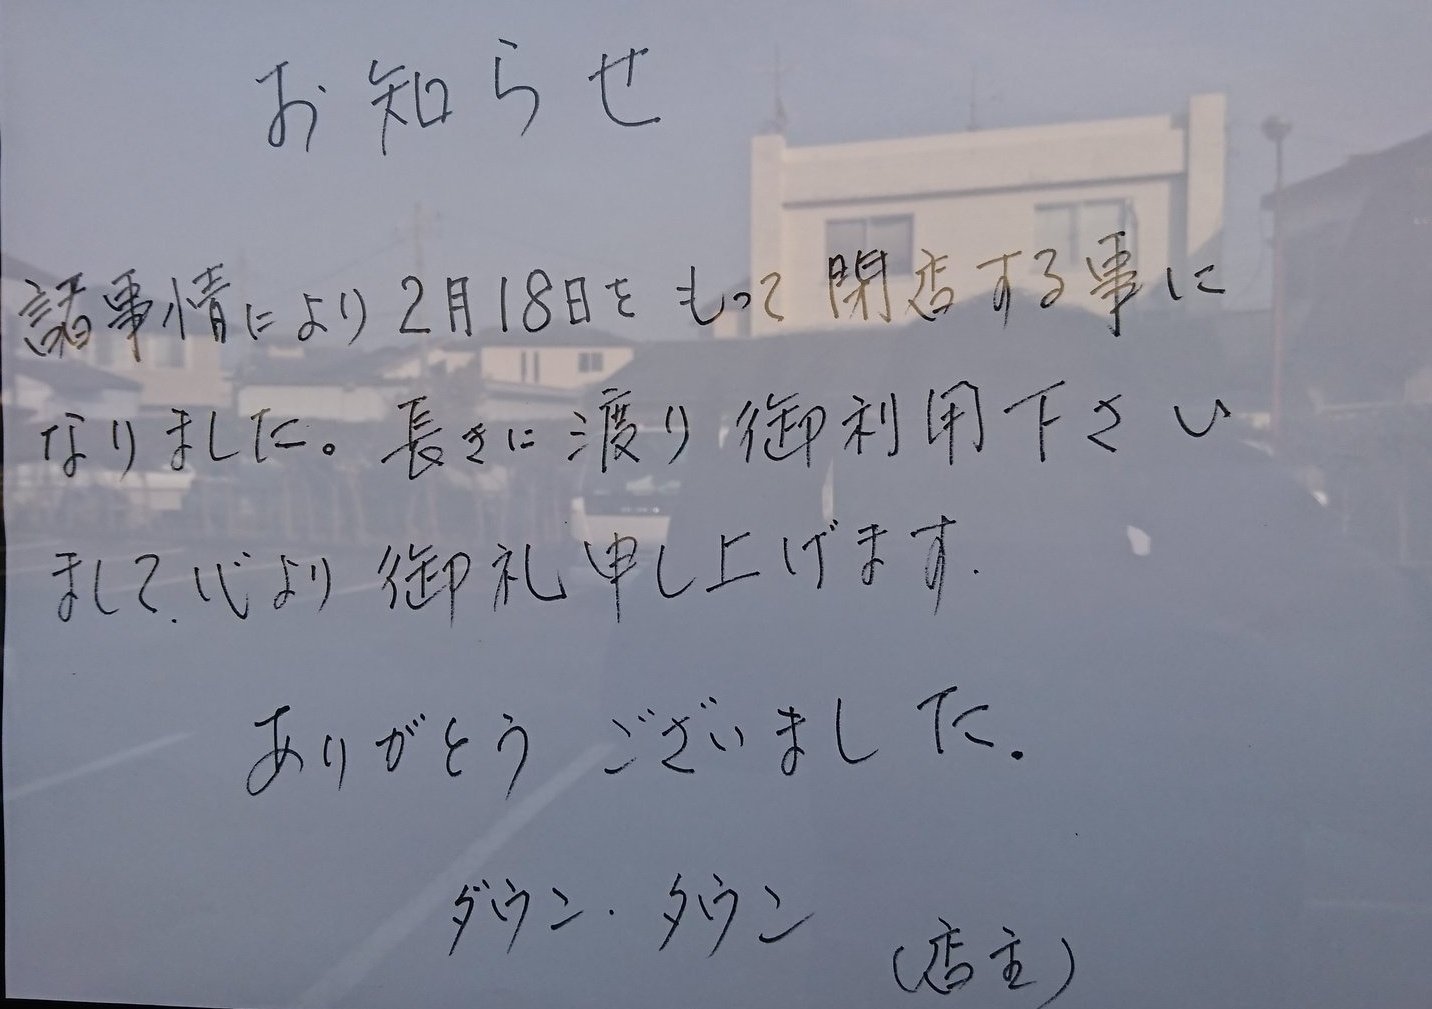 お知らせ
諸事情により2月18日をもって閉店する事に
なりました。長きに渡り御利用下さい
まして、心より御礼申し上げます.
ありがとうございました.
ダウン・タウン
(店主)